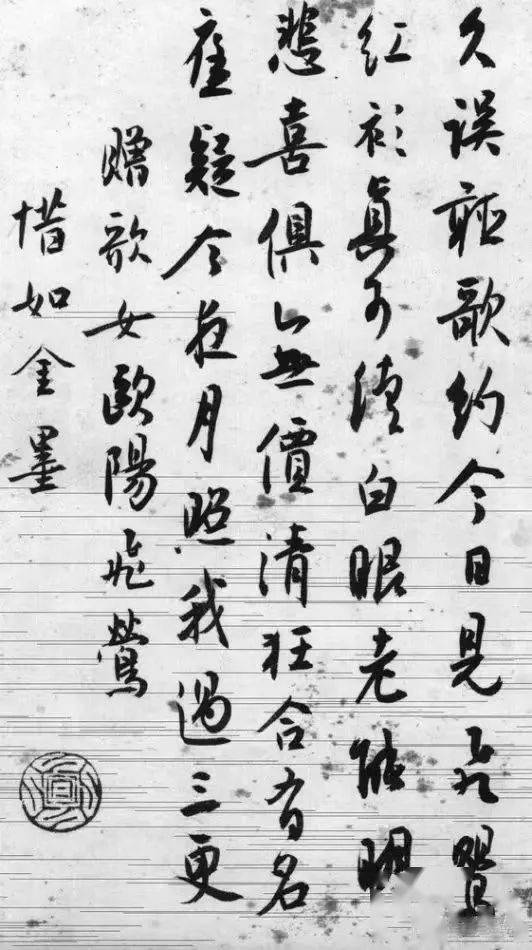 久誤聽歌約今日見飛鶯
紅衫真可白眼老能明
悲喜俱無價清狂合有名
應疑今夜月照我過三更
贈歌女歐陽飛鶯
惜如金墨